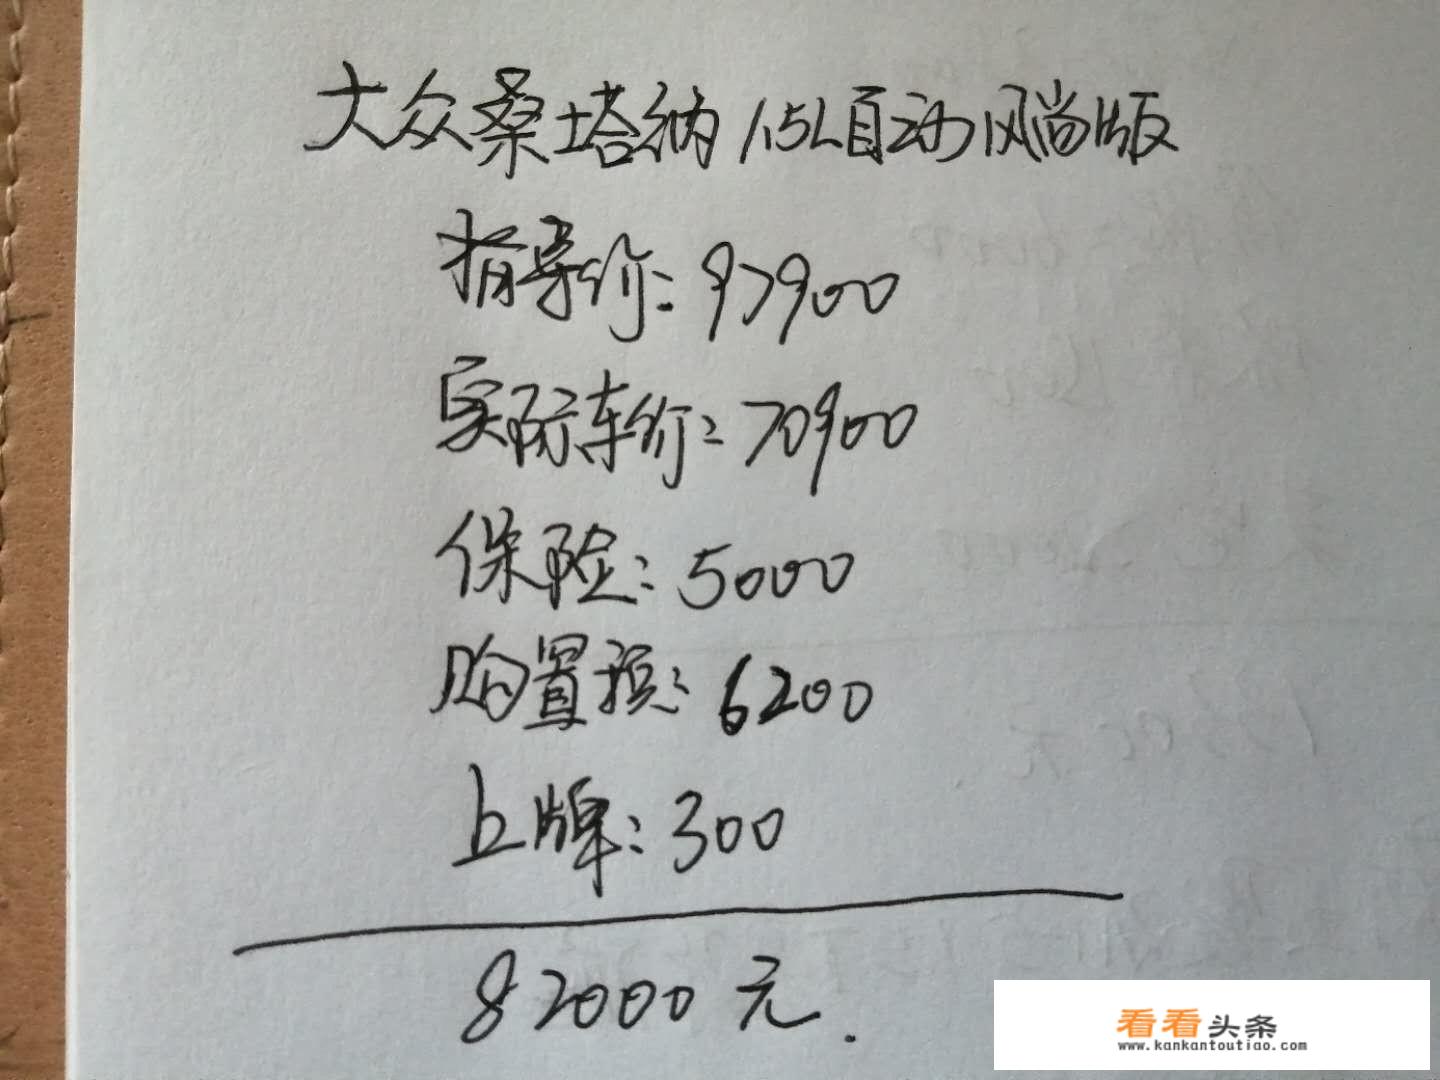 大众桑塔纳1.5L自动风尚版
指导价:97900
实际车价:70900
保险:5000
购置税:6200
上牌:300
82000元.
看看头条
www.kankantoutiao.com